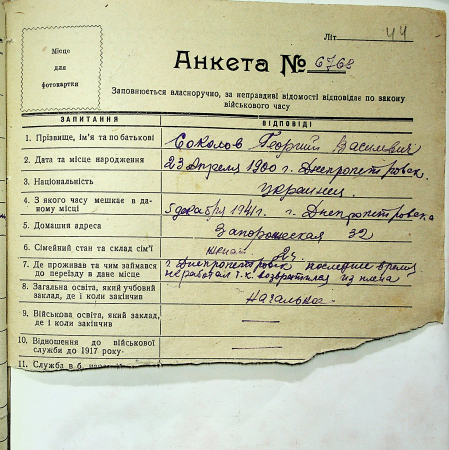 Літ. 44
Місце
для
фотокартки
Анкета № 6768
Заповнюється власноручно, за неправдиві відомості відповідає по закону
військового часу
ЗАПИТАННЯ ВІДПОВІДІ
1. Прізвище, ім'я та по батькові Соколов Георгий Василевич
2. Дата та місце народження 23 Апреля 1900 г. Днепропетровск.
3. Національність Украинец
4. З якого часу мешкає в да-
ному місці 5 декабря 1941 г. г. Днепропетровска
5. Домашня адреса Запорожская 32
6. Сімейний стан та склад сім'ї женат
7. Де проживав та чим займався
до переїзду в дане місце г Днепропетровск последнее время
не работал т.к. возвратился из плена
8. Загальна освіта, який учбовий
заклад, де і коли закінчив
9. Військова освіта, який заклад,
де і коли закінчив
10. Відношення до військової
служби до 1917 року
11. Служба в б.